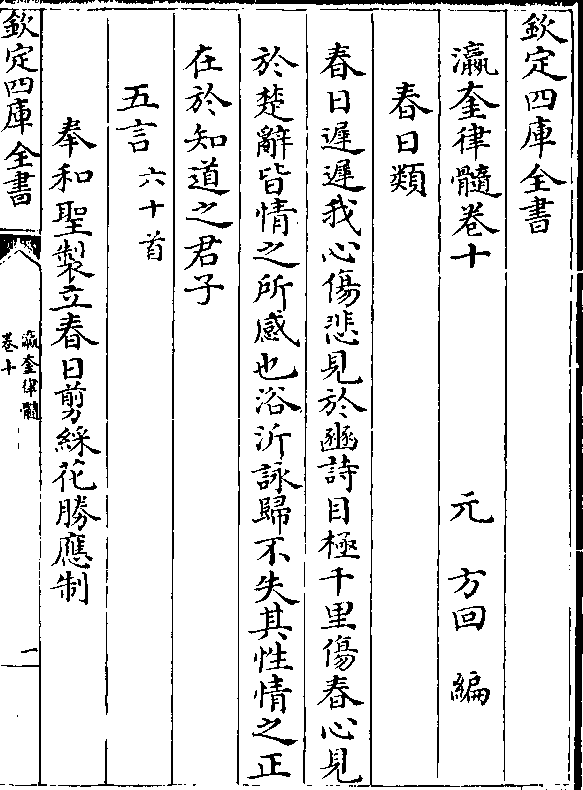 欽定四庫全書
瀛奎律髓卷十　元　方回　編
春日類
春日遲遲我心傷悲見於豳詩目極千里傷春心見
於楚辭皆情之所感也浴沂詠歸不失其性情之正
在於知道之君子
五言　六十首
奉和聖製立春日剪綵花勝應制
欽定四庫全書
瀛奎律髓
卷十
一